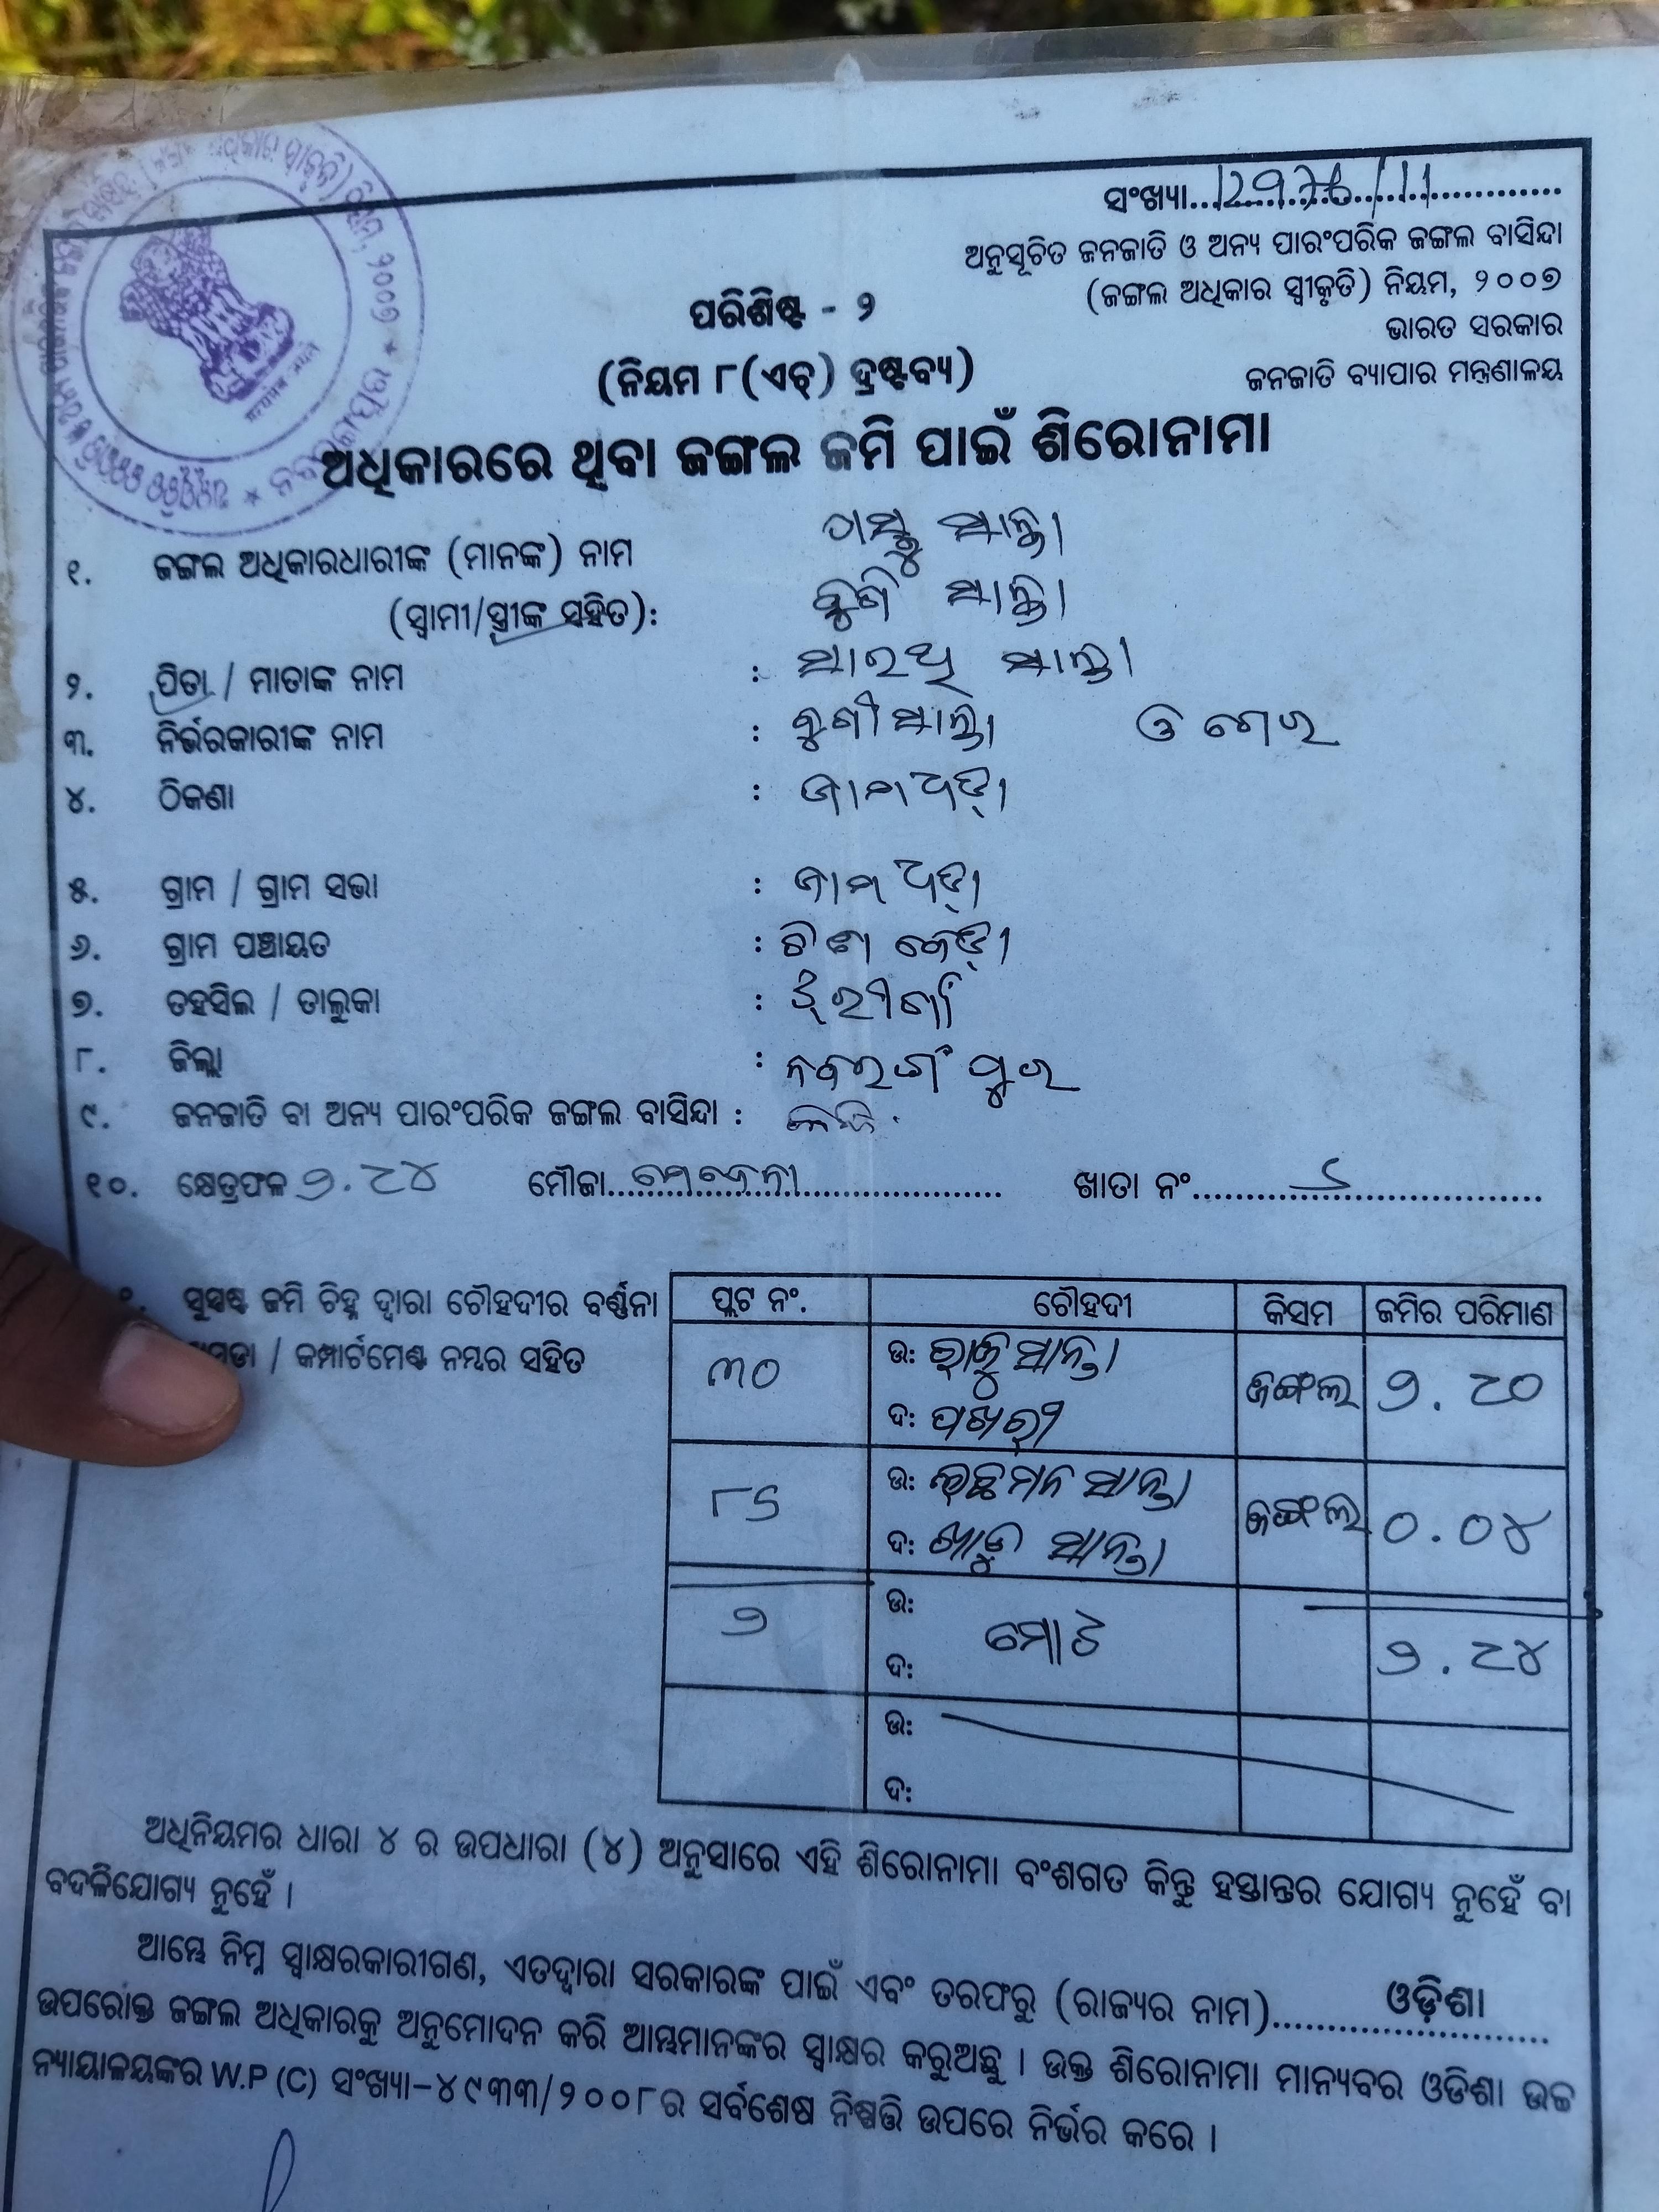 ସଂଖ୍ୟା
ଅନୁସୂଚିତ ଜନଜାତି ଓ ଅନ୍ୟ ପାରଂପରିକ ଜଙ୍ଗଲ ବାସିନ୍ଦା
(ଜଙ୍ଗଲ ଅଧିକାର ସ୍ୱୀକୃତି) ନିୟମ, ୨୦୦୭
ଭାରତ ସରକାର
ଜନଜାତି ବ୍ୟାପାର ମନ୍ତ୍ରଣାଳୟ
ପରିଶିଷ୍ଟ - ୨
(ନିୟମ ୮(ଏଚ୍) ଦ୍ରଷ୍ଟବ୍ୟ)
ଅଧିକାରରେ ଥିବା ଜଙ୍ଗଲ ଜମି ପାଇଁ ଶିରୋନାମା
୧. ଜଙ୍ଗଲ ଅଧିକାରଧାରୀଙ୍କ (ମାନଙ୍କ) ନାମ ସାନ୍ତା
(ସ୍ୱାମୀ/ସ୍ତ୍ରୀଙ୍କ ସହିତ): ସାନ୍ତା
୨. ପିତା / ମାତାଙ୍କ ନାମ : ସାନ୍ତା
୩. ନିର୍ଭରକାରୀଙ୍କ ନାମ : ସାନ୍ତା
୪. ଠିକଣା :
୫. ଗ୍ରାମ / ଗ୍ରାମ ସଭା :
୬. ଗ୍ରାମ ପଞ୍ଚାୟତ :
୭. ତହସିଲ / ତାଲୁକା : ଝରୀଗାଁ
୮. ଜିଲ୍ଲା : ନବରଙ୍ଗପୁର
୯. ଜନଜାତି ବା ଅନ୍ୟ ପାରଂପରିକ ଜଙ୍ଗଲ ବାସିନ୍ଦା :
୧୦. କ୍ଷେତ୍ରଫଳ ୨.୮୪ ମୌଜା ଖାତା ନଂ
ସୁସ୍ପଷ୍ଟ ଜମି ଚିହ୍ନ ଦ୍ୱାରା ଚୌହଦୀର ବର୍ଣ୍ଣନା
/ କମ୍ପାର୍ଟମେଣ୍ଟ ନମ୍ବର ସହିତ
ପ୍ଲଟ ନଂ. ଚୌହଦୀ କିସମ ଜମିର ପରିମାଣ
୩୦ ଉ: ସାନ୍ତା ଜଙ୍ଗଲ ୨.୮୦
ଦ: ପଖରୀ
ଉ: ଲଛମନ ସାନ୍ତା ଜଙ୍ଗଲ ୦.୦୪
ଦ: ଖାଡୁ ସାନ୍ତା
୨ ଉ: ମୋଟ ୨.୮୪
ଦ:
ଉ:
ଦ:
ଅଧିନିୟମର ଧାରା ୪ ର ଉପଧାରା (୪) ଅନୁସାରେ ଏହି ଶିରୋନାମା ବଂଶଗତ କିନ୍ତୁ ହସ୍ତାନ୍ତର ଯୋଗ୍ୟ ନୁହେଁ ବା
ବଦଳିଯୋଗ୍ୟ ନୁହେଁ ।
ଆମ୍ଭେ ନିମ୍ନ ସ୍ୱାକ୍ଷରକାରୀଗଣ, ଏତଦ୍ୱାରା ସରକାରଙ୍କ ପାଇଁ ଏବଂ ତରଫରୁ (ରାଜ୍ୟର ନାମ) ଓଡ଼ିଶା
ଉପରୋକ୍ତ ଜଙ୍ଗଲ ଅଧିକାରକୁ ଅନୁମୋଦନ କରି ଆମ୍ଭମାନଙ୍କର ସ୍ୱାକ୍ଷର କରୁଅଛୁ । ଉକ୍ତ ଶିରୋନାମା ମାନ୍ୟବର ଓଡିଶା ଉଚ୍ଚ
ନ୍ୟାୟାଳୟଙ୍କର W.P (C) ସଂଖ୍ୟା-୪୯୩୩/୨୦୦୮ର ସର୍ବଶେଷ ନିଷ୍ପତ୍ତି ଉପରେ ନିର୍ଭର କରେ ।